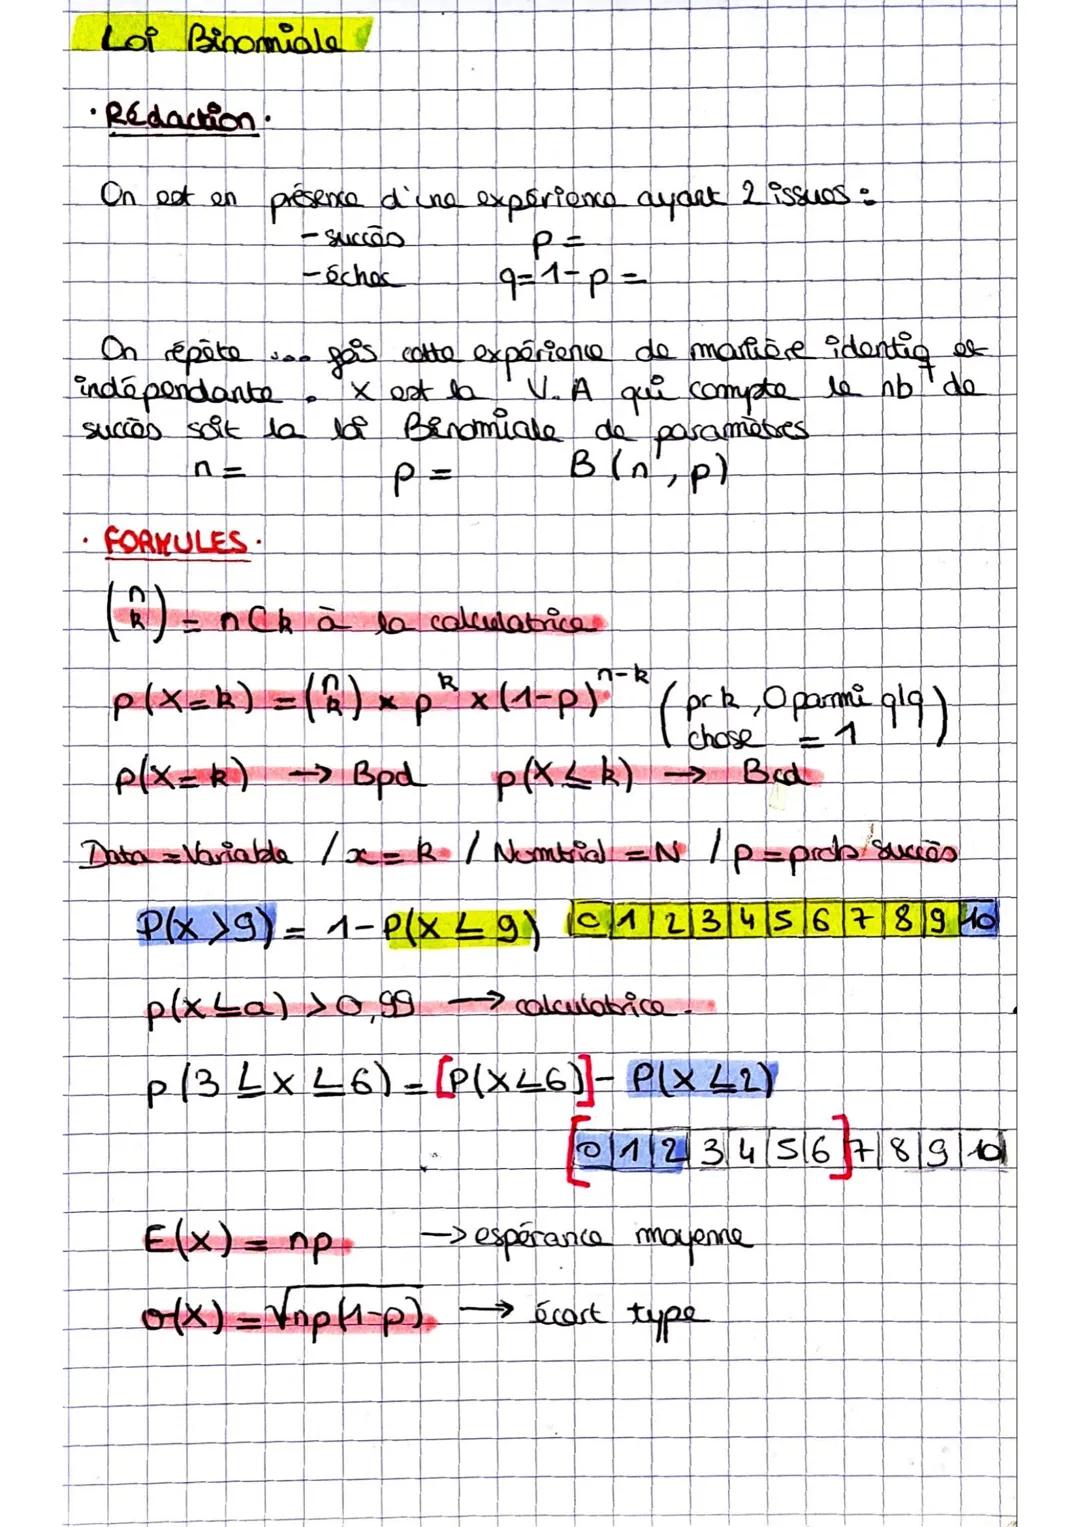 Loi Binomiale
· Rédaction ·
On est en présence d'une expérience ayant 2 issues :
- succès p =
- échec q = 1 - p =
On répète ... fois cette expérience de manière identiq et
indépendante. X est la V.A qui compte le nb de
succès soit la loi Binomiale de paramètres
n = p = B (n, p)
· FORMULES ·
(n k) = nCk à la calculatrice
p(X=k) = (n k) × p^k × (1-p)^n-k (pr k, 0 parmi qlq
chose = 1)
p(X=k) → Bpd p(X≤k) → Bcd
Data = Variable / x = k / Numtrial = N / p = prob succès
P(X>9) = 1 - P(X≤9) 0 1 2 3 4 5 6 7 8 9 10
p(X≤a) > 0,99 → calculatrice.
p(3≤X≤6) = [P(X≤6)] - P(X≤2)
[0 1 2 3 4 5 6] 7 8 9 10
E(X) = np → espérance moyenne
σ(X) = √np(1-p) → écart type